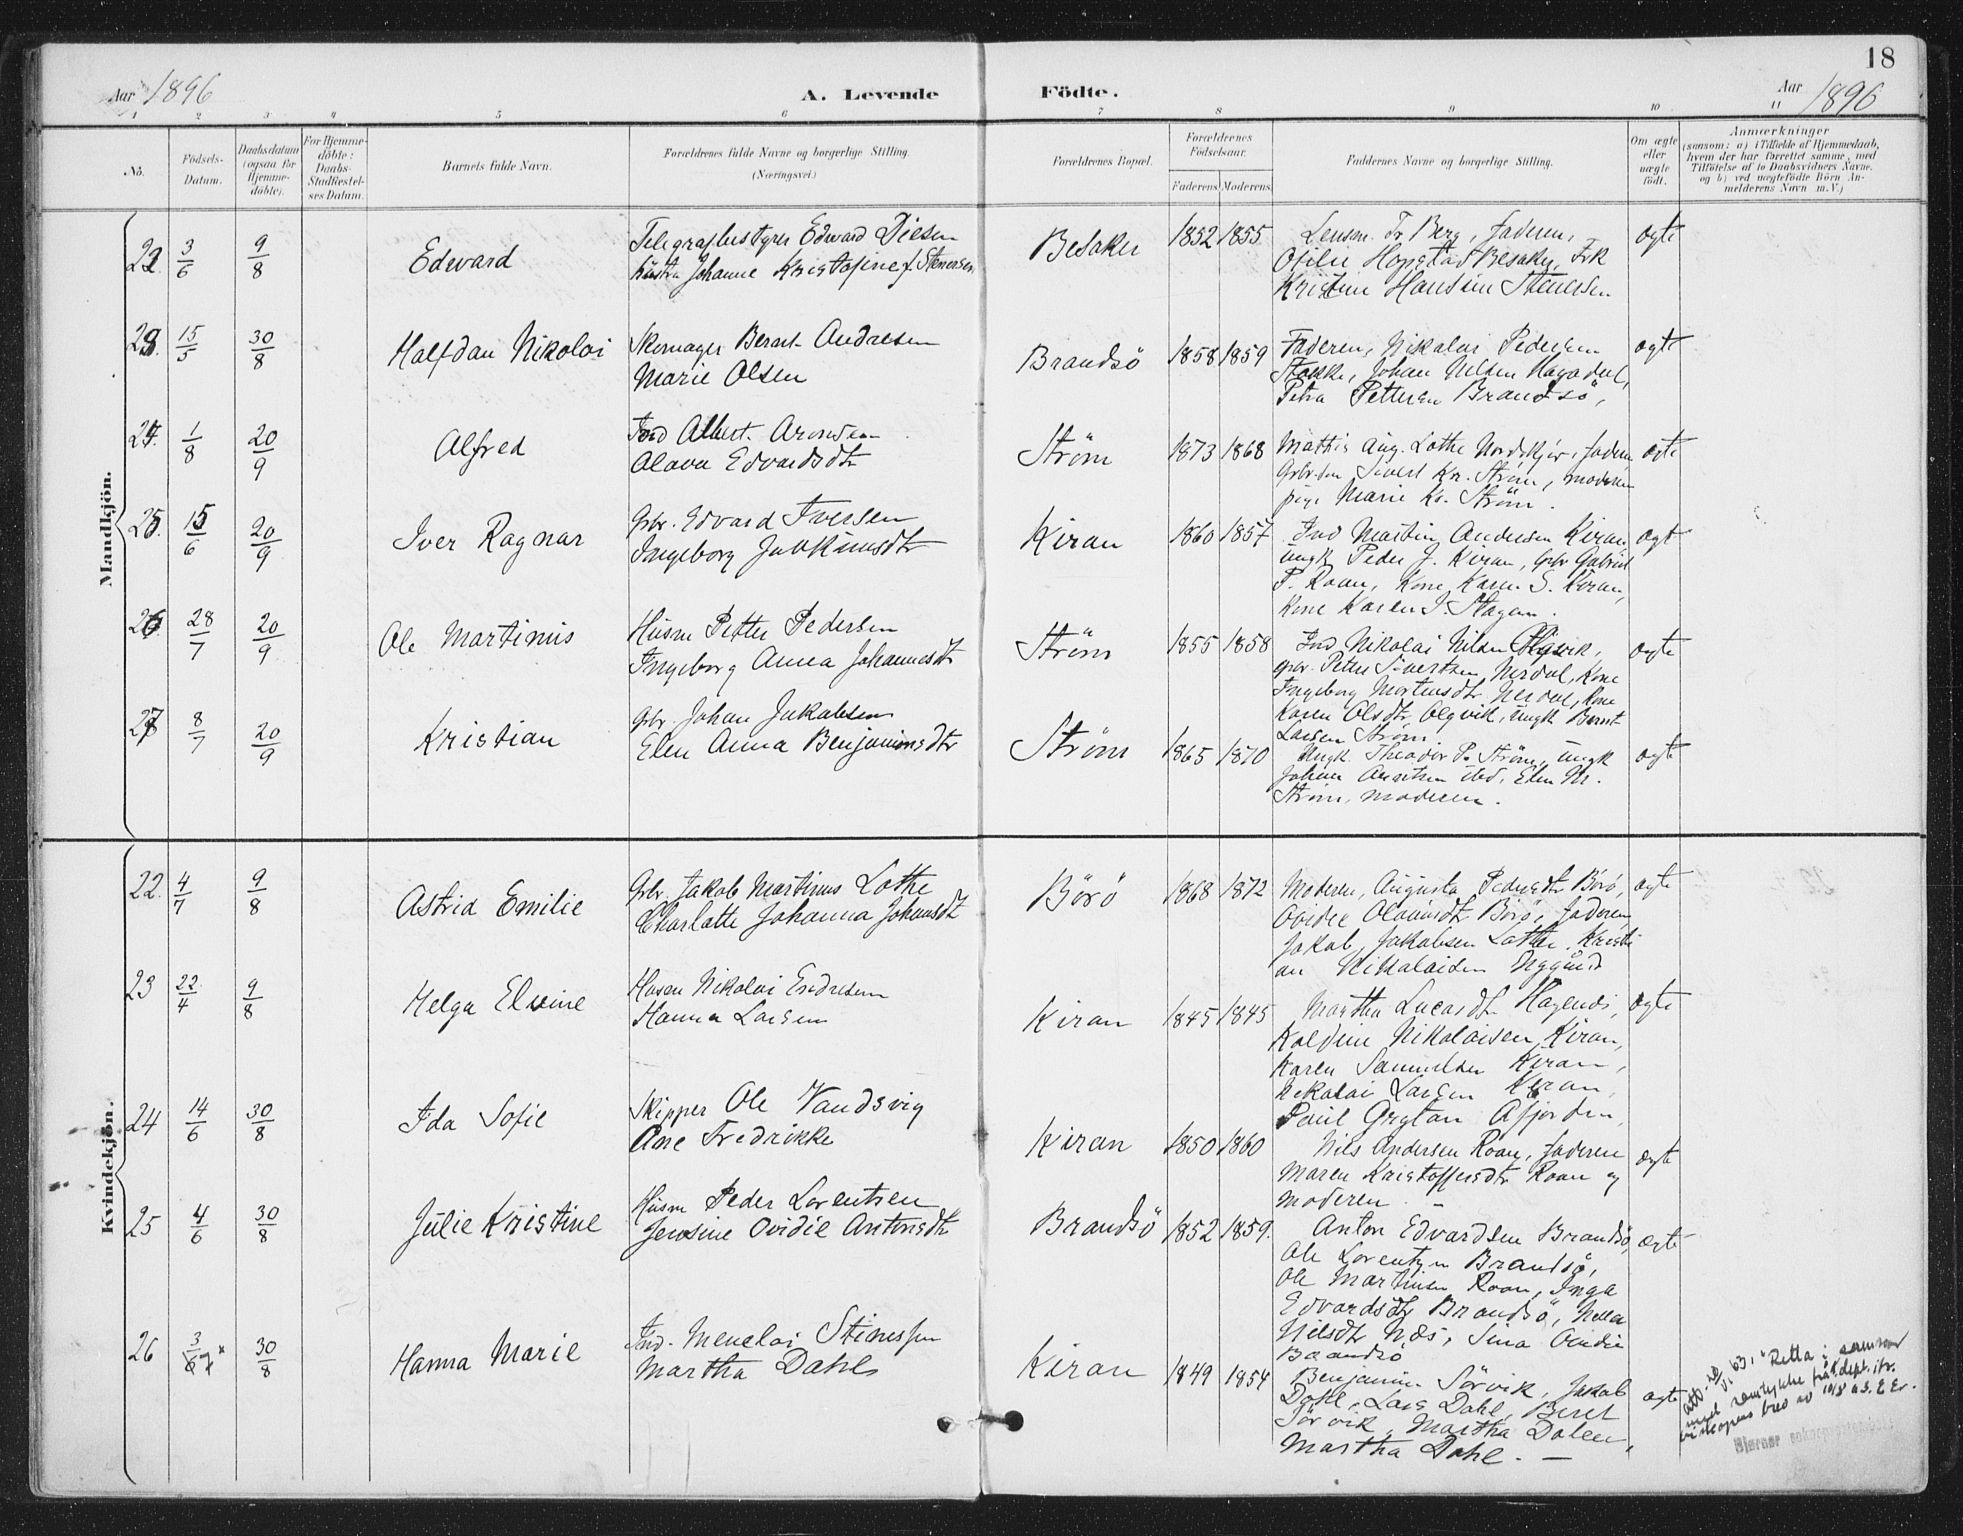 18
Aar 1896
A. Levende
Födte.
Aar 1896
1 2 3 4 5 6 7 8 9 10 11
No.
Födsels-
Datum.
Daabsdatum
(ogsaa for
Hjemme-
döbte).
For Hjemme-
döbte:
Daabs-
Stadfæstel-
ses Datum.
Barnets fulde Navn.
Forældrenes fulde Navne og borgerlige Stilling.
(Næringsvei.)
Forældrenes Bopæl.
Forældrenes
Födselsaar.
Faderens. Moderens.
Faddernes Navne og borgerlige Stilling.
Om ægte
eller
uægte
födt.
Anmærkninger
(saasom: a) i Tilfælde af Hjemmedaab,
hvem der har forrettet samme, med
Tilföielse af to Daabsvidners Navne.
og b) ved uægtefödte Börn An-
melderens Navn m. V.)
Mandkjön.
22. 3/6 9/8
Edvard
Telegrafbestyrer Edward Diesen
hustru Johanne Kristofine f. Stenersen
Besaker
1852 1855
Lensm. Fr Berg, Faderen,
Ofilie Hopstad Besaker, Frk
Kristine Hansine Stenersen
ægte
23. 15/5 30/8
Halfdan Nikolai
Skomager Bernt Andresen
Marie Olsen
Brandsö
1858 1859
Faderen, Nikolai Pedersen
Stokke, Johan Nilsen
Petra Pettersen Brandsö,
ægte
24. 1/8 20/9
Alfred
Ind Albert Arondsen
Olava Edvardsdtr
Ström
1873 1868
Mathis Aug. Lothe Nordskjör, Faderen
Gbr.sön Sivert Kr. Ström, moderen
pige Marie Kr. Ström.
ægte
25. 15/6 20/9
Iver Ragnar
Gbr. Edvard Iversen
Ingeborg Joakimsdtr
Kiran
1860 1857
Ind Martin Andersen Kiran
Ungk Peder J. Kiran, Gbr Gabriel
P. Roan, Kone Karen S. Kiran,
Kone Karen J. Hagen.
ægt
26. 28/7 20/9
Ole Martinus
Husm Petter Pedersen
Ingeborg Anna Johannesdtr
Ström
1855 1858
Ind Nikolai Nilsen Olgvik,
gbr. Petter Sivertsen, Nerdal, Kone
Ingeborg Mortensdtr Nerdal, Kone
Karen Olsdtr Olgvik, Ungk Bernt
Larsen Ström
ægte
27. 8/7 20/9
Kristian
Gbr. Johan Jakobsen
Elen Anna Benjaminsdtr
Ström
1865 1870
Ungk. Theodor P. Ström, Ungk
Johan Arntsen ibd, Elen M.
Ström, moderen.
ægte
Kvindekjön.
22. 4/7 9/8
Astrid Emilie
Gbr. Jakob Martinus Lothe
Charlotte Johanna Johansdtr
Börö
1868 1872
Moderen, Augusta Pedersdtr Börö,
Ovidie Olausdtr Börö, Faderen
Jakob Jakobsen Lothe, Kristi
an Nikolaisen
ægte
23 22/4 9/8
Helga Elvine
Husm Nikolai Endresen
Hanna Larsen
Kiran
1845 1845
Martha Lucasdtr
Kaldine Nikolaisen Kiran,
Karen Samuelsen Kiran,
Nikolai Larsen Kiran,
Paul Grytan Afjorden.
ægte
24 14/6 30/8
Ida Sofie
Skipper Ole Vandsvig
Ane Fredrikke
Kiran
1850 1860
Nils Andersen Roan, Faderen
Maren Kristoffersdtr Roan og
moderen. —
ægte
25 4/6 30/8
Julie Kristine
Husm Peder Lorentsen
Jensine Ovidie Antonsdtr
Brandsö
1852 1859.
Anton Edvardsen Brandsö,
Ole Lorentzen Brandsö,
Ole Martinsen Roan, Inga
Edvardsdtr Brandsö,
Nilsdtr Næs, Sina Ovidie
Brandsö
ægte
26 3/7 30/8
Hanna Marie
Ind. Menelai Stinessen
Martha Dahl
Kiran
1849 1854
Benjamin Sörvik, Jakob
Dahl, Lars Dahl, Beret
Sörvik, Martha Dalen,
Martha Dahl. —
ægte
Retta i samsvar
med samtykke frå Kdept. itr.
viskopens brev av 10/8 63. E Er.
Bjørnør